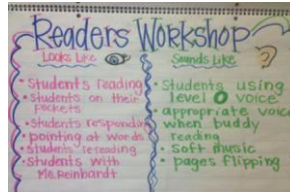 Readers Workshop
Looks Like
Sounds Like
• Students reading
• Students on their
pockets
• Students responding
• pointing at words
• Students rereading
• Students with
Ms. Reinhardt
• Students using
level 0 voice
• appropriate voice
when buddy
reading
• soft music
• pages flipping